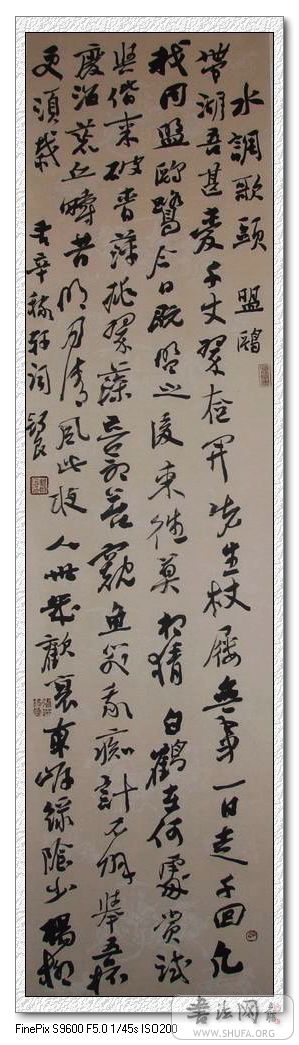 水調歌頭 盟鷗
帶湖吾甚愛千丈翠奩開先生杖屨無事一日走千回凡
我同盟鷗鷺今日既盟之後來往莫相猜白鶴在何處嘗試
與偕來破青萍排翠藻立蒼苔窺魚笑汝癡計不解舉吾杯
廢沼荒丘疇昔明月清風此夜人世幾歡哀東岸綠陰少楊柳
更須栽 書辛稼軒詞
FinePix S9600 F5.0 1/45s ISO200
書法网
WWW.SHUFA.ORG